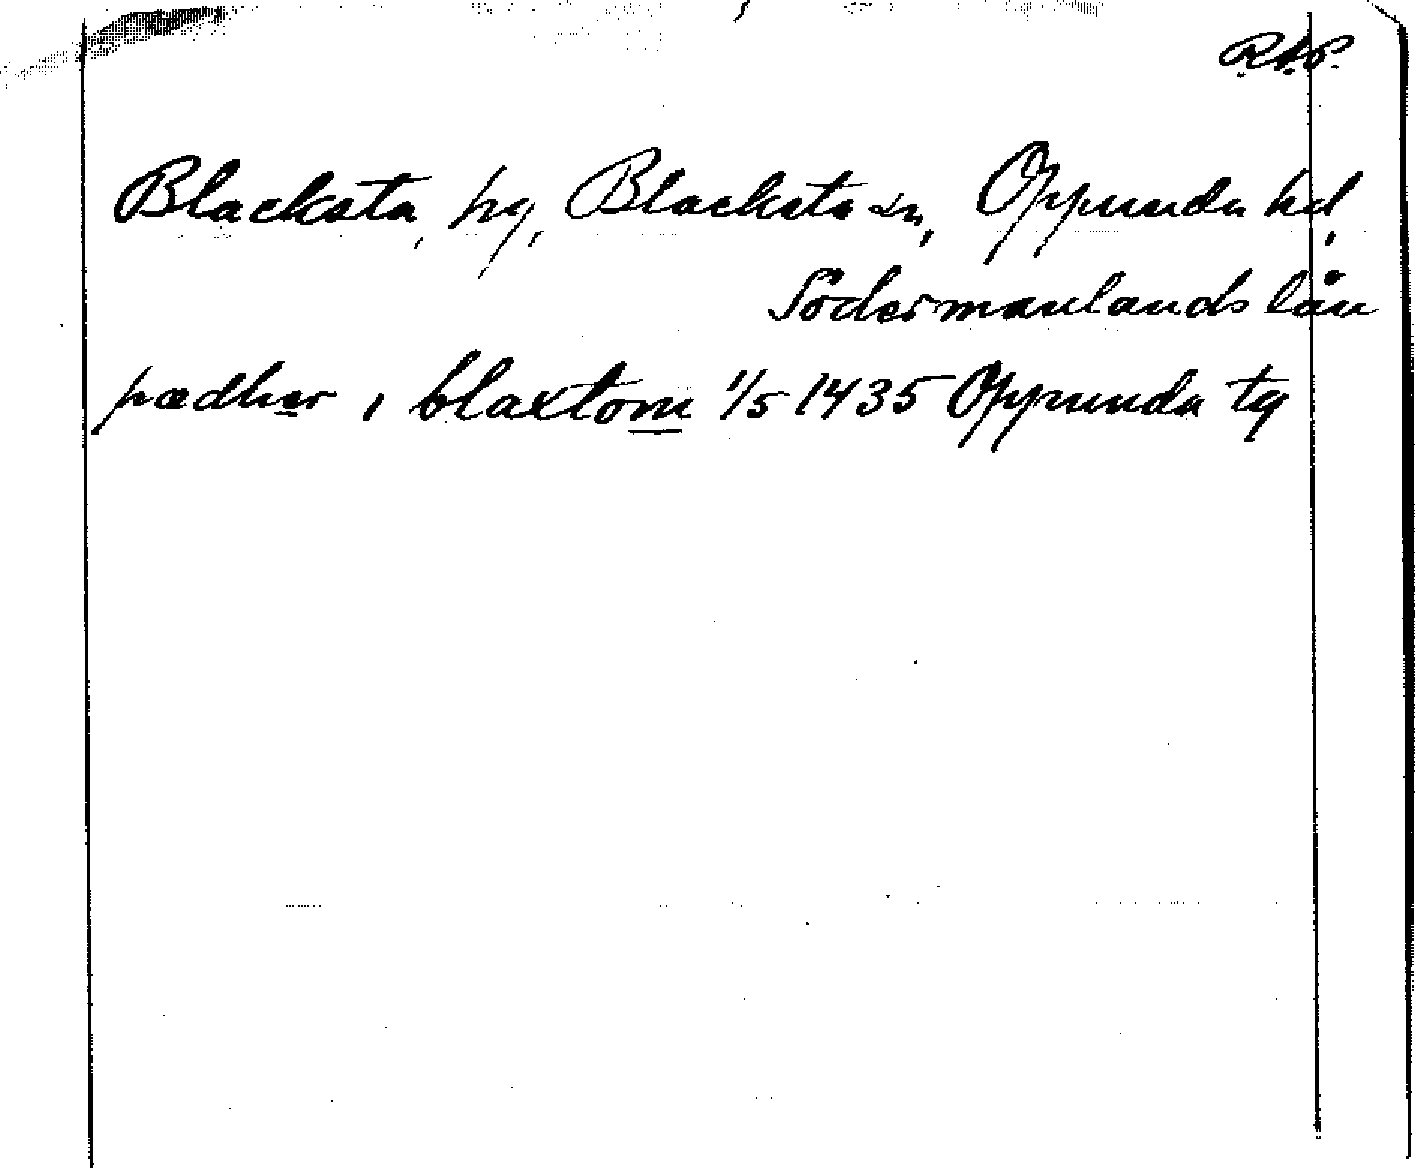 R.A.P.
Blacksta, hg, Blacksta sn, Oppunda hd,
Södermanlands län
pædher i blaxtom 1/5 1435 Oppunda tg